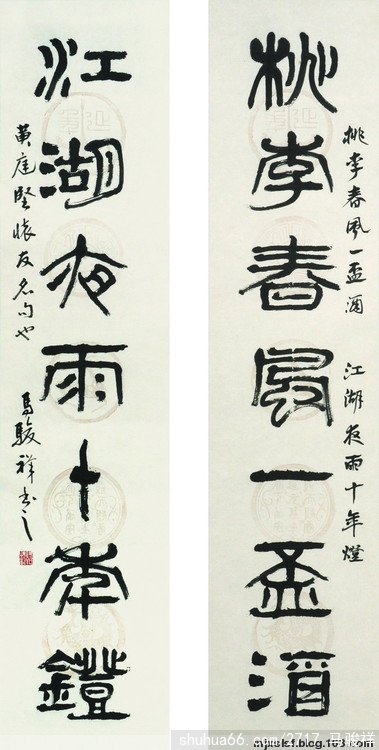 桃李春風一盃酒
桃李春風一盃酒 江湖夜雨十年燈
江湖夜雨十年鐙
黃庭堅懷友名句也 馬駿祥書之
shuhua66.com/2717 马骏祥